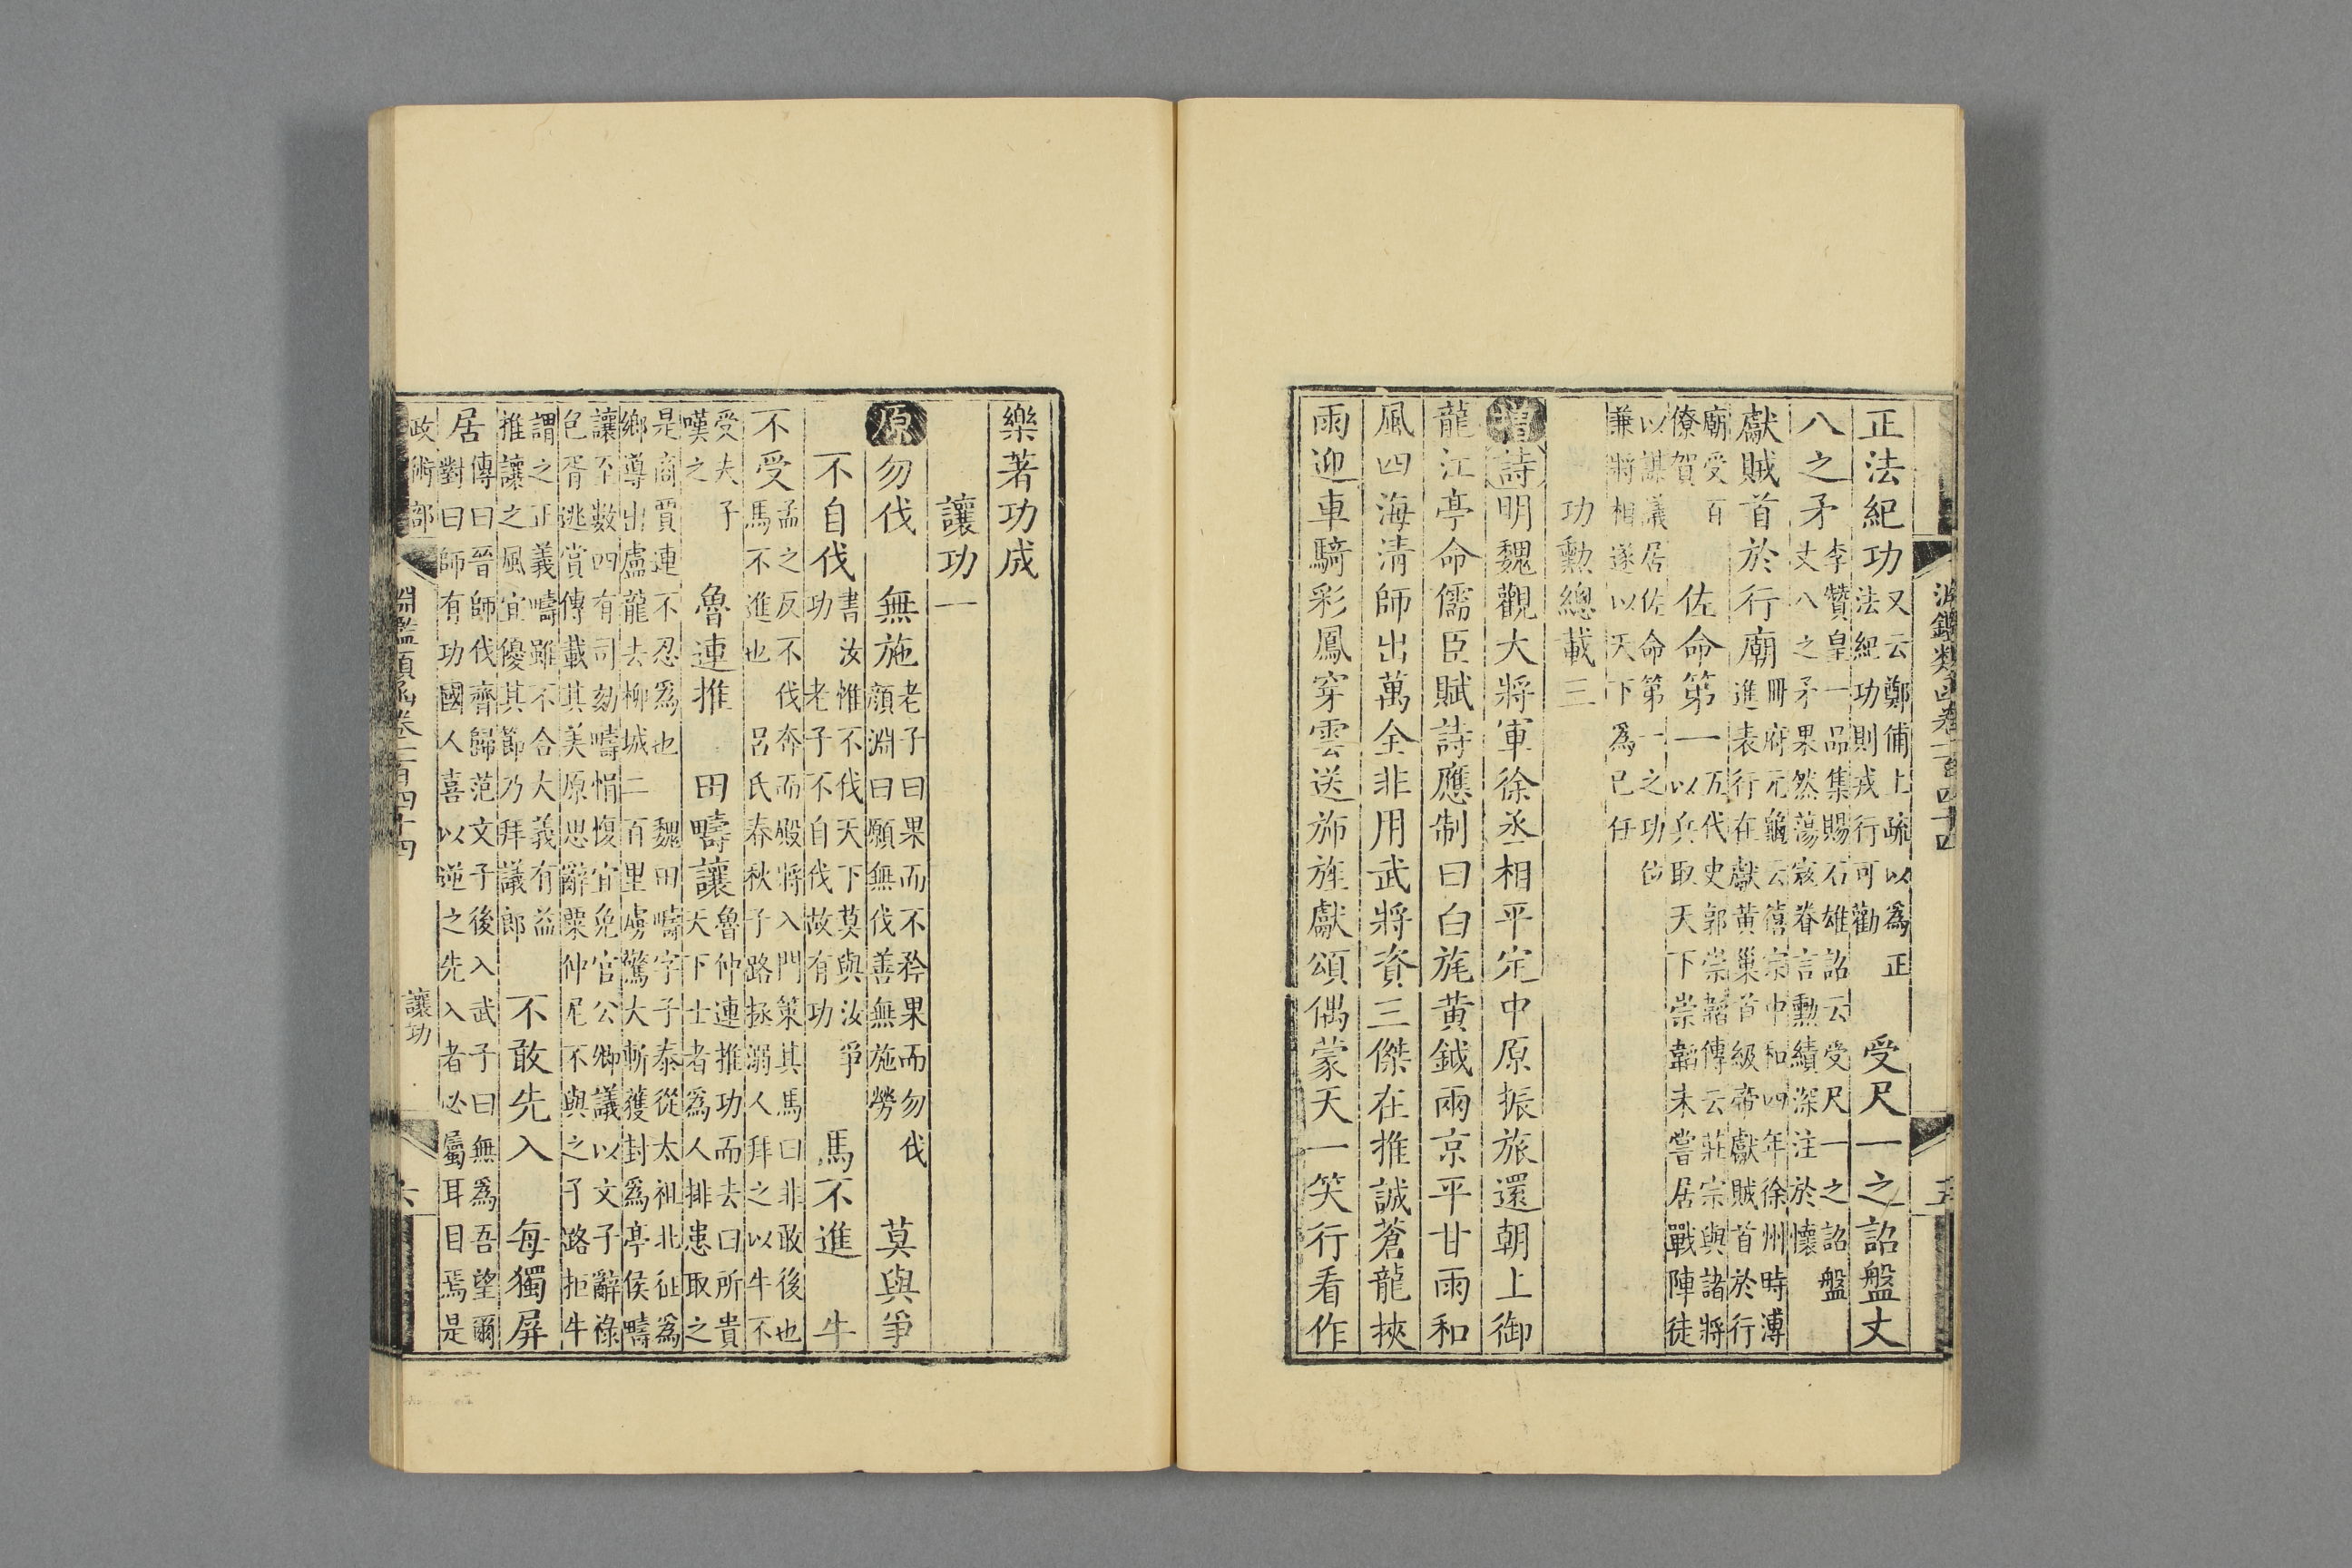 正法紀功又云鄭甫上疏以為正法紀功則戎行可勸 受尺一之詔盤丈
八之矛李贊皇一品集賜石雄詔云受尺一之詔盤丈八之矛果然蕩寇眷言勲績深注於懷
獻賊首於行廟冊府元龜云僖宗中和四年徐州時溥進表行在獻黄巢首級帝獻賊首於行
廟受百僚賀 佐命第一五代史郭崇韜傳云莊宗與諸將以兵取天下崇韜未嘗居戰陣徒
以謀議居佐命第一之功位兼將相遂以天下為已任
功勲總載三
增詩明魏觀大將軍徐丞相平定中原振旅還朝上御
龍江亭命儒臣賦詩應制曰白旄黄鉞兩京平甘雨和
風四海清師出萬全非用武將資三傑在推誠蒼龍挾
雨迎車騎彩鳳穿雲送斾旌獻頌偶蒙天一笑行看作
樂著功成
讓功一
原勿伐 無施老子曰果而不矜果而勿伐顏淵曰願無伐善無施勞 莫與爭
不自伐書汝惟不伐天下莫與汝爭功 老子不自伐故有功 馬不進 牛
不受孟之反不伐奔而殿將入門策其馬曰非敢後也馬不進也 呂氏春秋子路拯溺人拜之以牛不
受夫子嘆之 魯連推 田疇讓魯仲連推功而去曰所貴天下士者為人排患取之
是商賈連不忍為也 魏田疇字子泰從太祖北征為鄉導出盧龍去柳城二百里虜驚大斬獲封為亭侯疇
讓至數四有司劾疇悁愎宜免官公卿議以文子辭祿包胥逃賞傳載其美原思辭粟仲尼不與之子路拒牛
謂之正義疇雖不合大義有益推讓之風宜優其節乃拜議郎 不敢先入 每獨屏
居傳曰晉師伐齊歸范文子後入武子曰無為吾望爾對曰師有功國人喜以逆之先入者必屬耳目焉是
政術部 淵鑑類函卷一百四十四 讓功 六